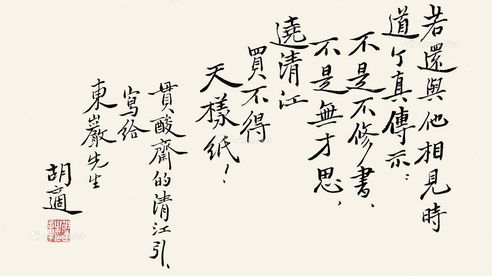 若還與他相見時
道个真傳示：
不是不修書、
不是無才思，
遶清江
買不得
天樣紙！
貫酸齋的清江引、
寫給
東巖先生
胡適